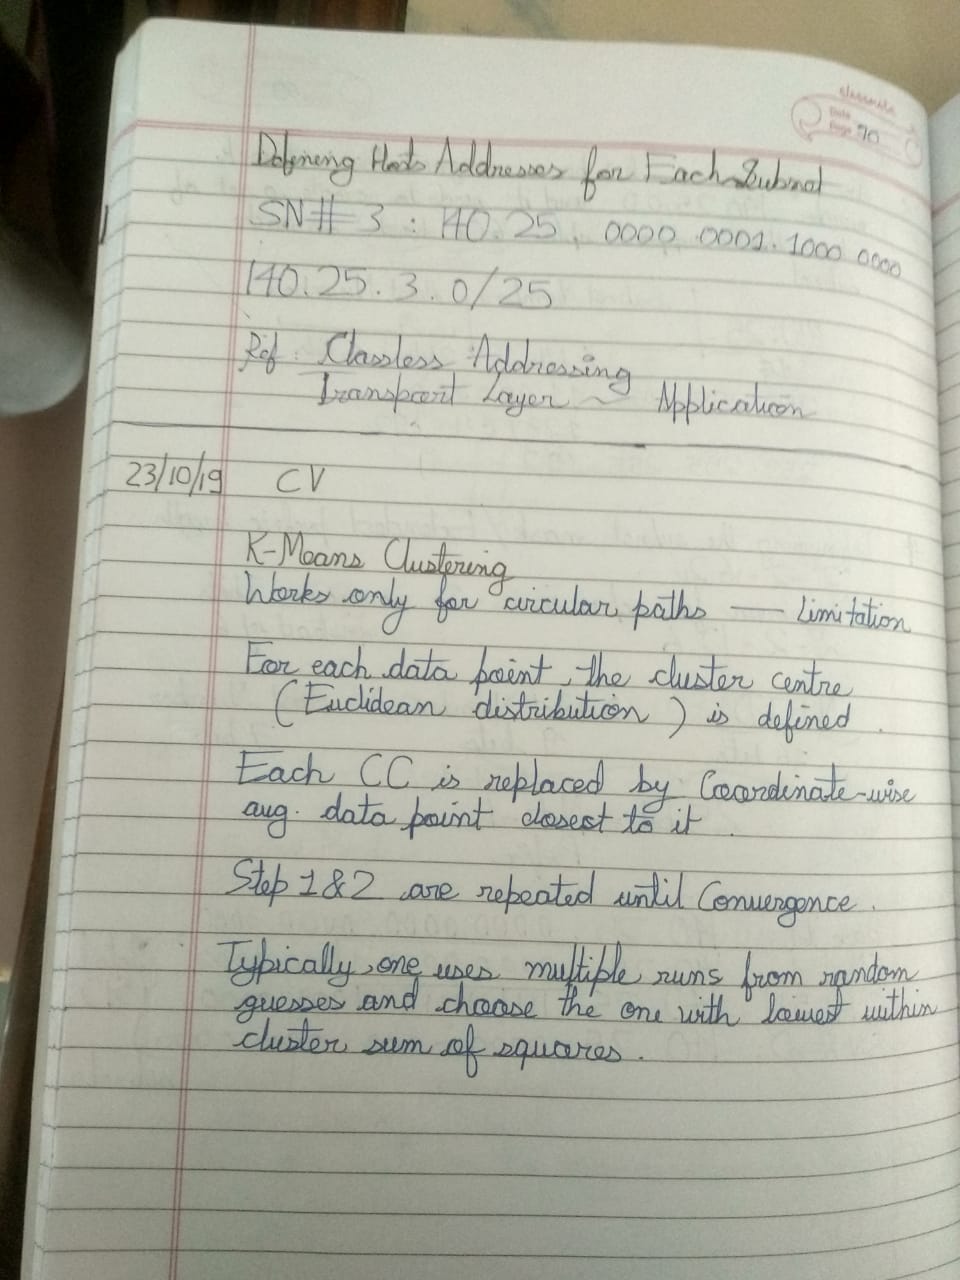 classmate
Date
Page 70
Defining Hosts Addresses for Each Subnet
SN# 3 : 140.25. 0000 0001. 1000 0000
140.25.3.0/25
Ref : Classless Addressing
Transport Layer ~ Application
23/10/19 CV
K-Means Clustering
Works only for circular paths — Limitation
For each data point, the cluster centre
(Euclidean distribution) is defined.
Each CC is replaced by Coordinate-wise
avg. data point closest to it.
Step 1&2 are repeated until Convergence.
Typically, one uses multiple runs from random
guesses and choose the one with lowest within
cluster sum of squares.